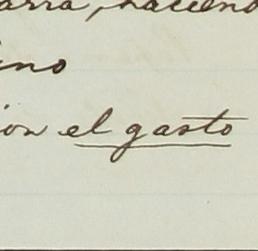 arra, haciend
ino
ion el gasto